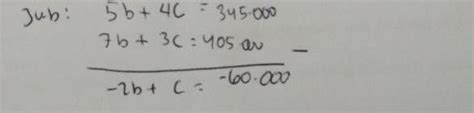 Jub: 5b + 4c = 345.000
7b + 3c = 405.000 −
-2b + c = -60.000